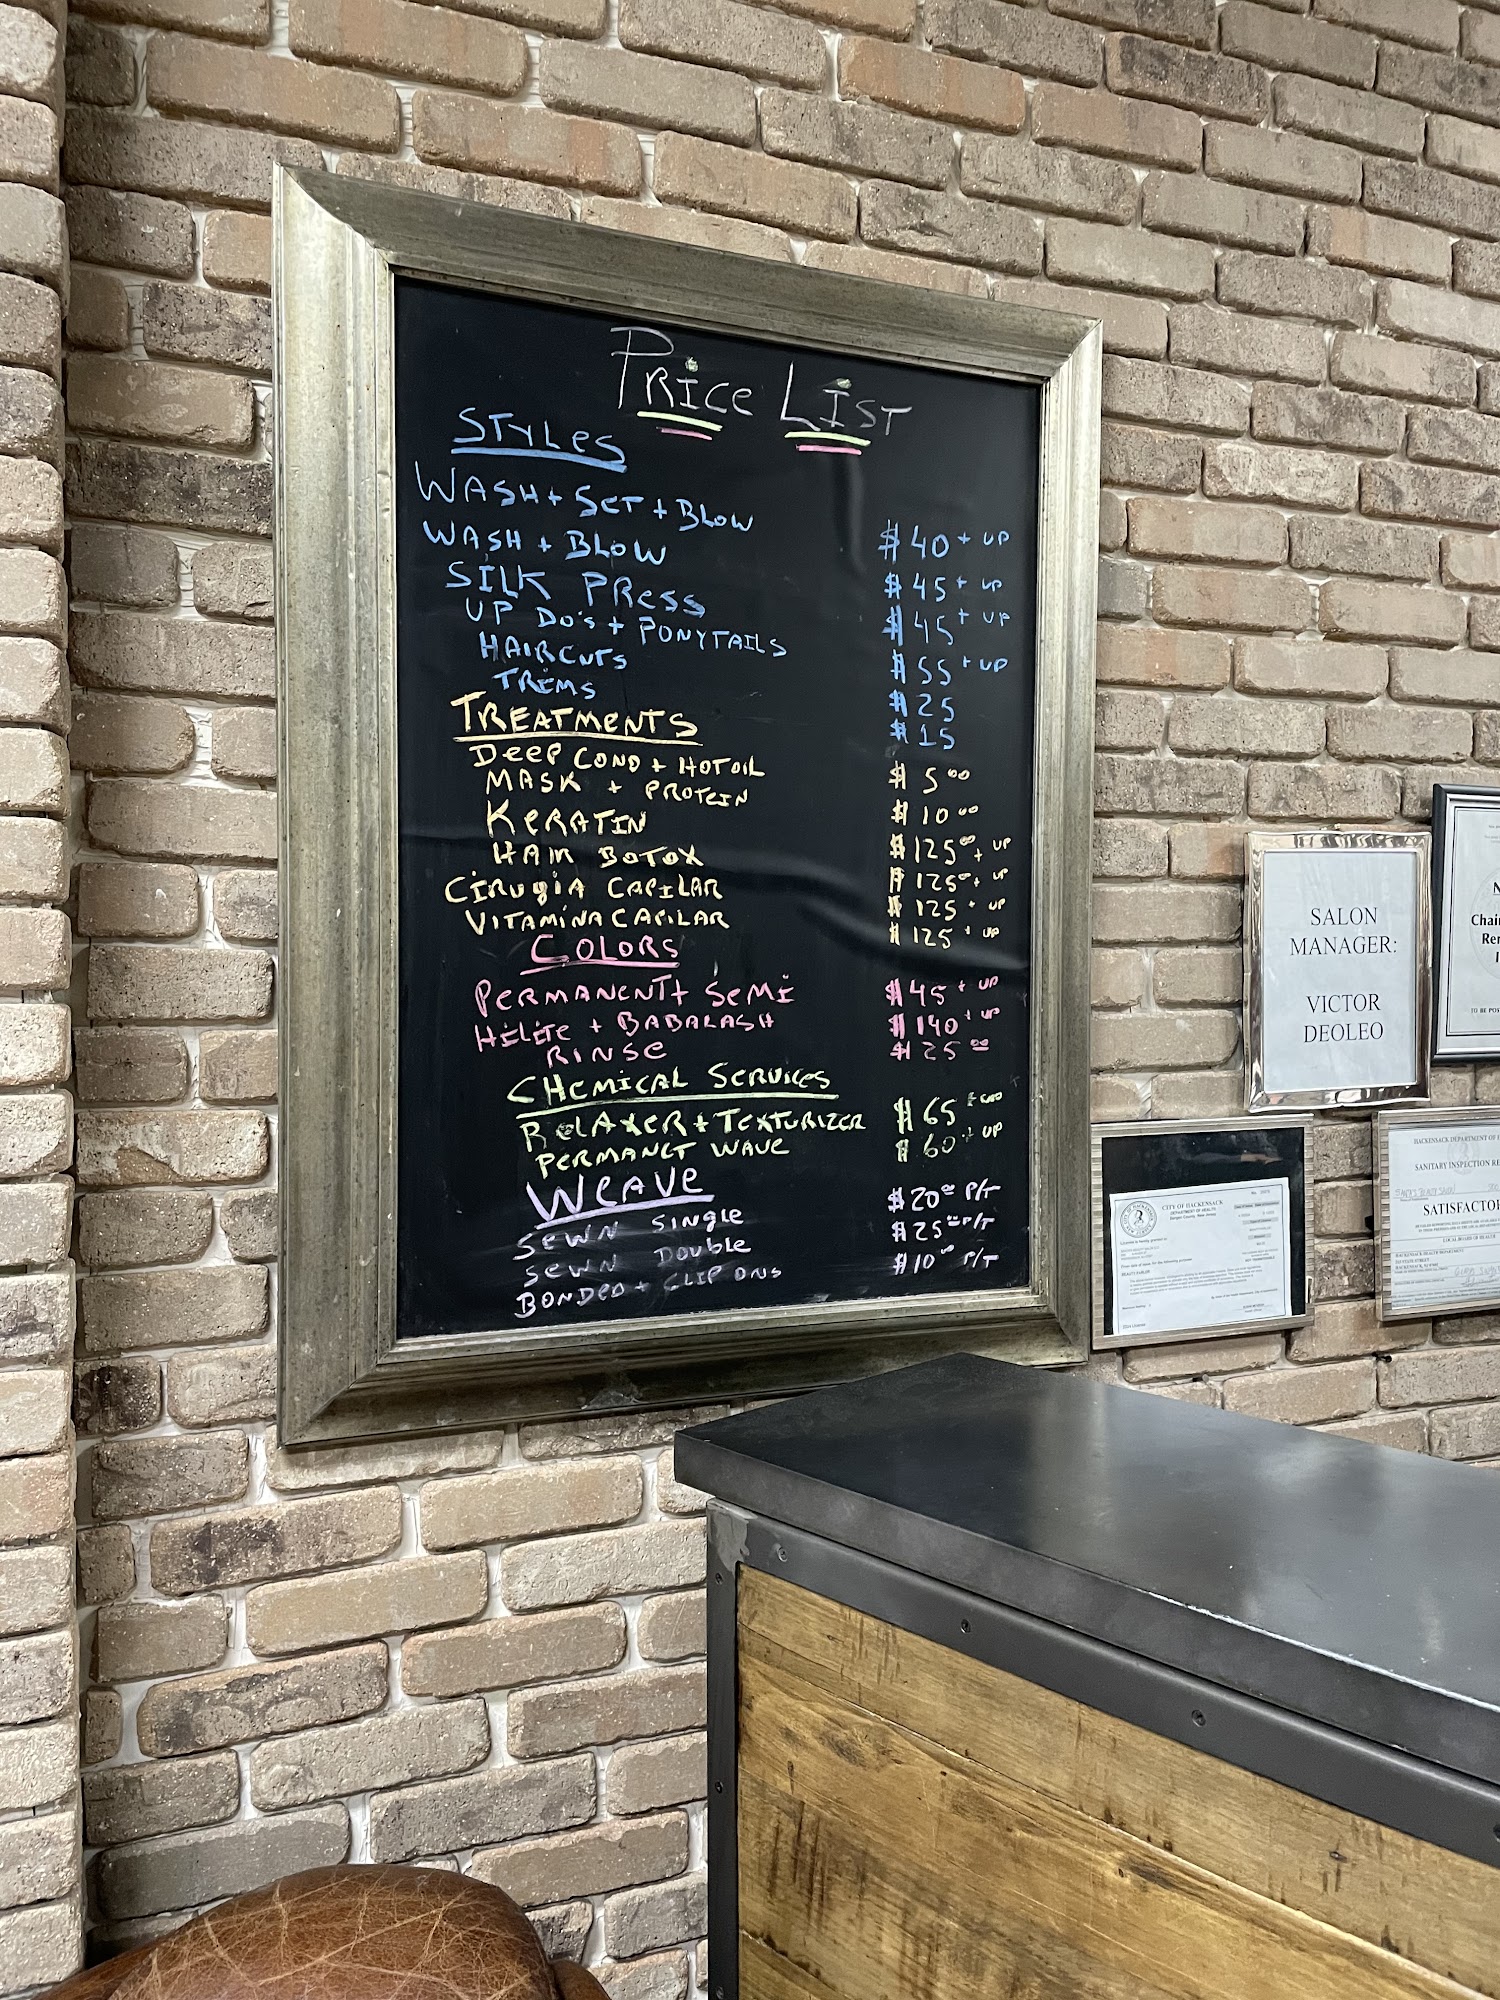 PRICE LIST
STYLES
WASH + SET + BLOW $40 + UP
WASH + BLOW $45 + UP
SILK PRESS $45 + UP
UP DO'S + PONYTAILS $55 + UP
HAIRCUTS $25
TRIMS $15
TREATMENTS
DEEP COND + HOT OIL $5.00
MASK + PROTEIN $10.00
KERATIN $125.00 + UP
HAIR BOTOX $125.00 + UP
CIRUGIA CAPILAR $125 + UP
VITAMINA CAPILAR $125 + UP
COLORS
PERMANENT + SEMI $45 + UP
HILITE + BABALASH $140 + UP
RINSE $25.00
CHEMICAL SERVICES
RELAXER + TEXTURIZER $65
PERMANET WAVE $60 + UP
WEAVE
SEWN SINGLE $20.00 P/T
SEWN DOUBLE $25.00 P/T
BONDED + CLIP ONS $10.00 P/T
SALON
MANAGER:
VICTOR
DEOLEO
CITY OF HACKENSACK
DEPARTMENT OF HEALTH
HACKENSACK DEPARTMENT OF
SANITARY INSPECTION